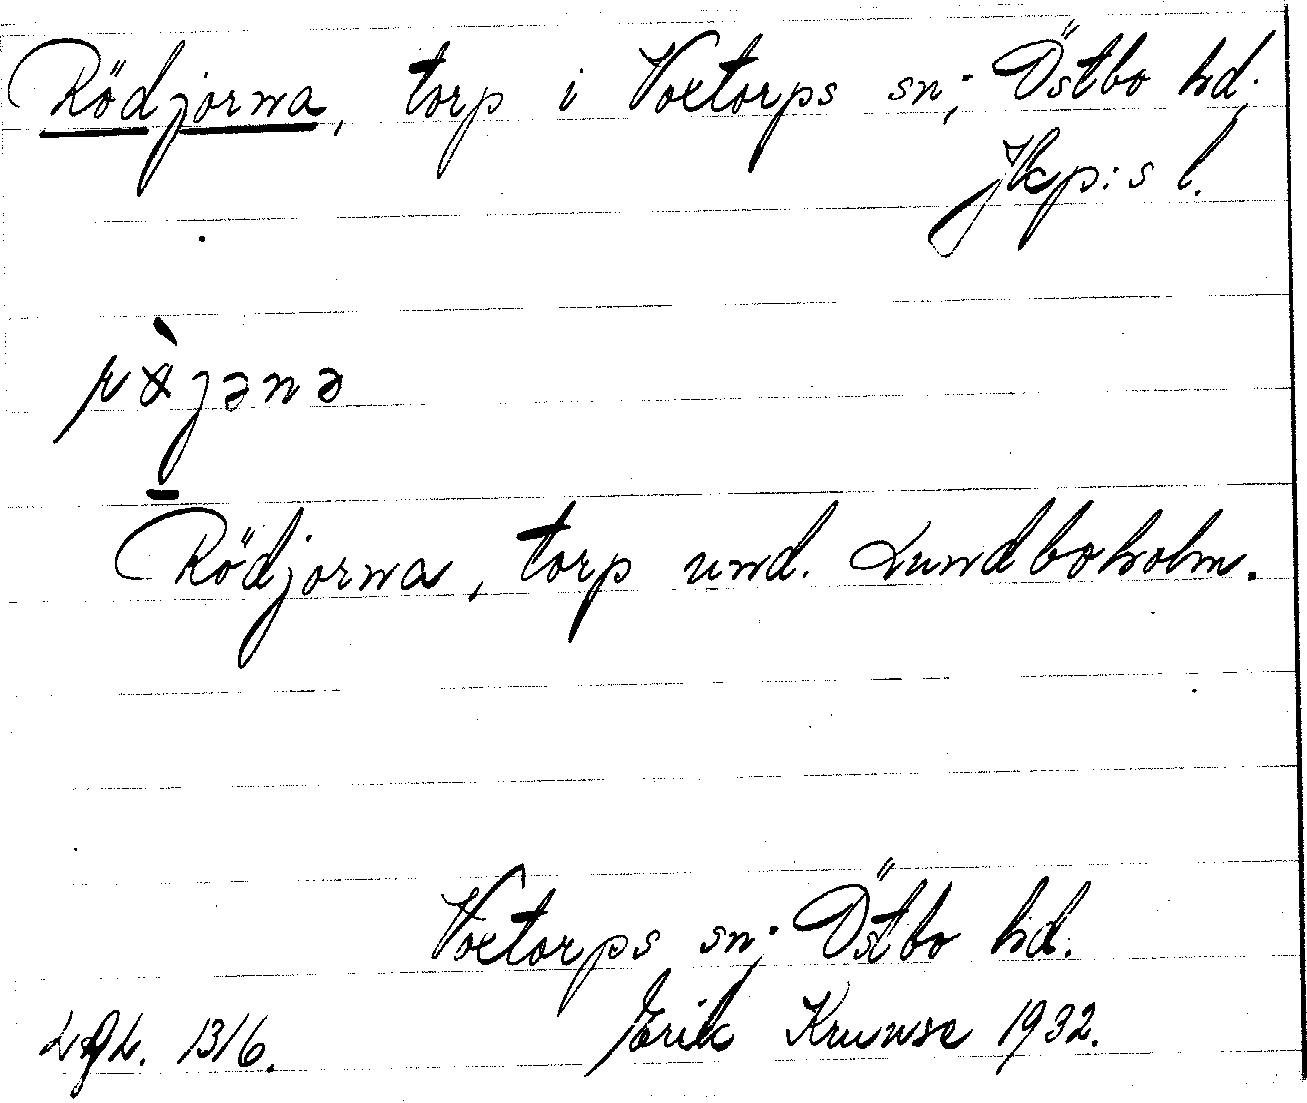 Rödjorna, torp i Voxtorps sn; Östbo hd;
Jkp:s l.
Rödjorna, torp und. Lundboholm.
Voxtorps sn; Östbo hd.
1316. Erik Krunse 1932.